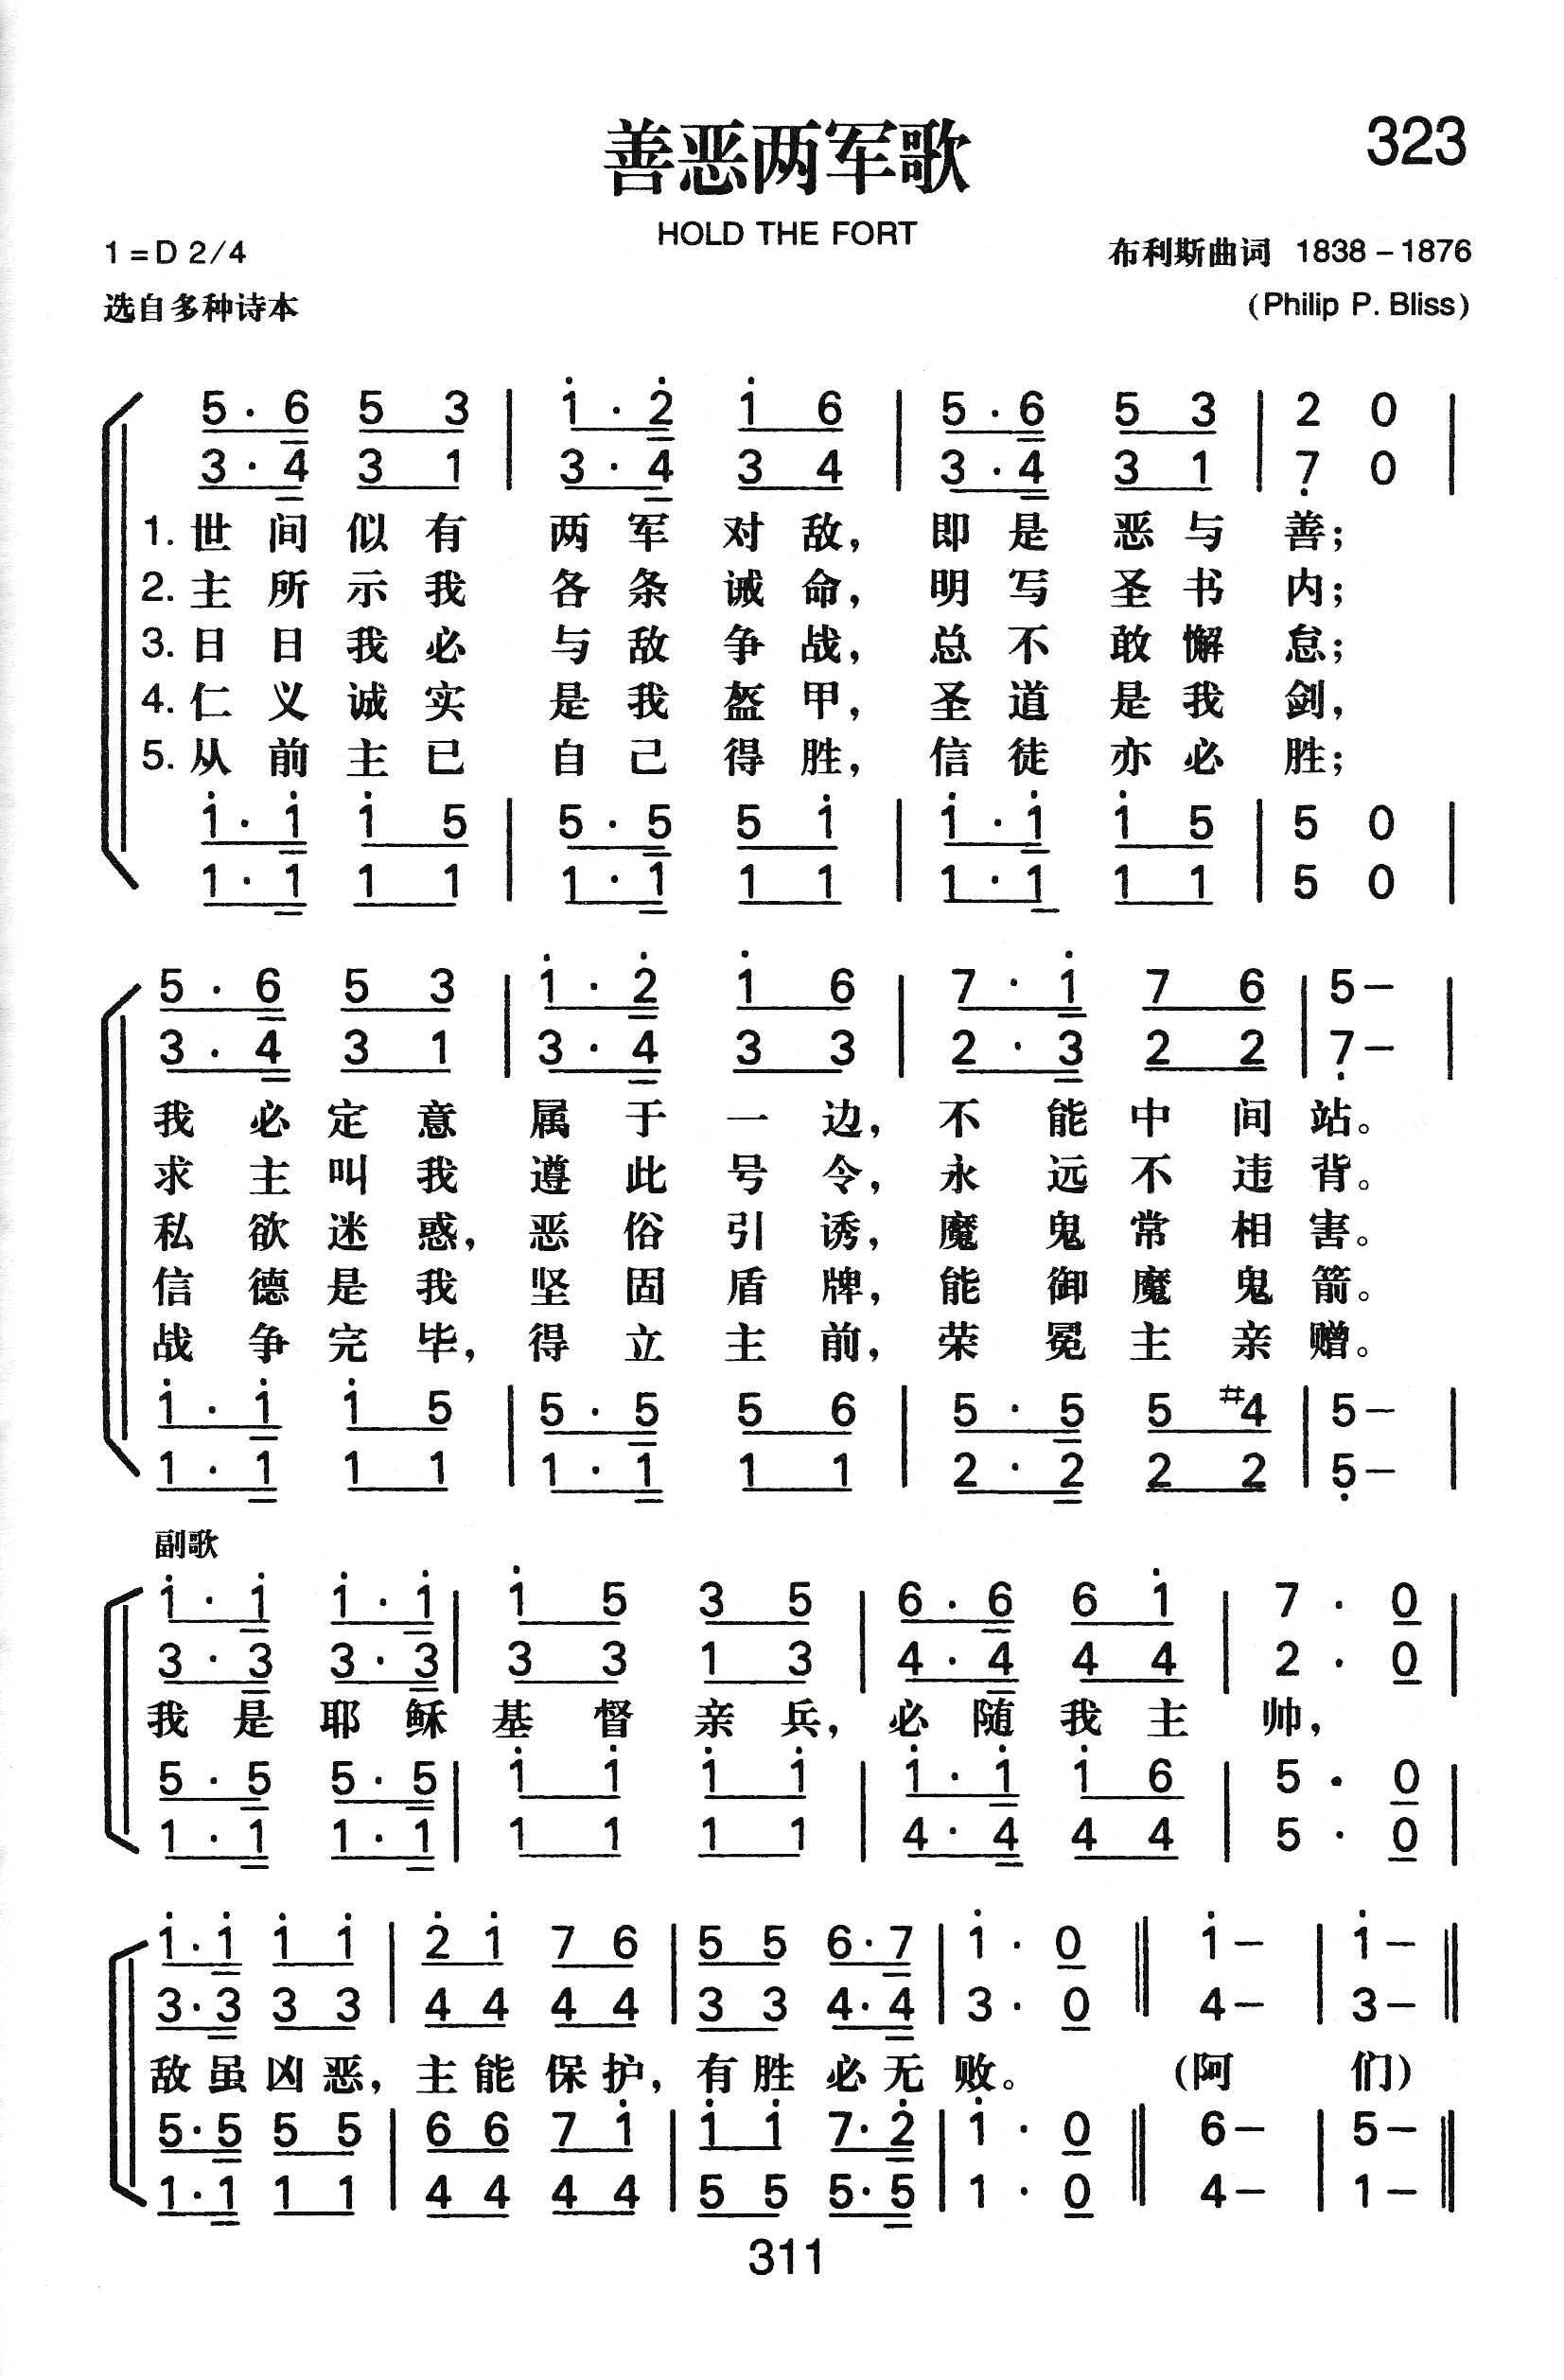 323
善恶两军歌
HOLD THE FORT
1=D 2/4
布利斯曲词 1838-1876
选自多种诗本
(Philip P. Bliss)
5·6 5 3 | 1̇·2̇ 1̇ 6 | 5·6 5 3 | 2 0 |
3·4 3 1 | 3·4 3 4 | 3·4 3 1 | 7̣ 0 |
1. 世间似有 两军对敌, 即是恶与善;
2. 主所示我 各条诫命, 明写圣书内;
3. 日日我必 与敌争战, 总不敢懈怠;
4. 仁义诚实 是我盔甲, 圣道是我剑,
5. 从前主已 自己得胜, 信徒亦必胜;
1̇·1̇ 1̇ 5 | 5·5 5 1̇ | 1̇·1̇ 1̇ 5 | 5 0 |
1·1 1 1 | 1·1 1 1 | 1·1 1 1 | 5 0 |
5·6 5 3 | 1̇·2̇ 1̇ 6 | 7·1̇ 7 6 | 5- |
3·4 3 1 | 3·4 3 3 | 2·3 2 2 | 7̣- |
我必定意 属于一边, 不能中间站。
求主叫我 遵此号令, 永远不违背。
私欲迷惑, 恶俗引诱, 魔鬼常相害。
信德是我 坚固盾牌, 能御魔鬼箭。
战争完毕, 得立主前, 荣冕主亲赠。
1̇·1̇ 1̇ 5 | 5·5 5 6 | 5·5 5 #4 | 5- |
1·1 1 1 | 1·1 1 1 | 2·2 2 2 | 5̣- |
副歌
1̇·1̇ 1̇·1̇ | 1̇ 5 3 5 | 6·6 6 1̇ | 7· 0 |
3·3 3·3 | 3 3 1 3 | 4·4 4 4 | 2· 0 |
我是耶稣 基督亲兵, 必随我主帅,
5·5 5·5 | 1̇ 1̇ 1̇ 1̇ | 1̇·1̇ 1̇ 6 | 5· 0 |
1·1 1·1 | 1 1 1 1 | 4·4 4 4 | 5· 0 |
1̇·1̇ 1̇ 1̇ | 2̇ 1̇ 7 6 | 5 5 6·7 | 1̇· 0 ‖ 1̇- | 1̇- ‖
3·3 3 3 | 4 4 4 4 | 3 3 4·4 | 3· 0 ‖ 4- | 3- ‖
敌虽凶恶, 主能保护, 有胜必无败。 (阿们)
5·5 5 5 | 6 6 7 1̇ | 1̇ 1̇ 7·2̇ | 1̇· 0 ‖ 6- | 5- ‖
1·1 1 1 | 4 4 4 4 | 5 5 5·5 | 1· 0 ‖ 4- | 1- ‖
311